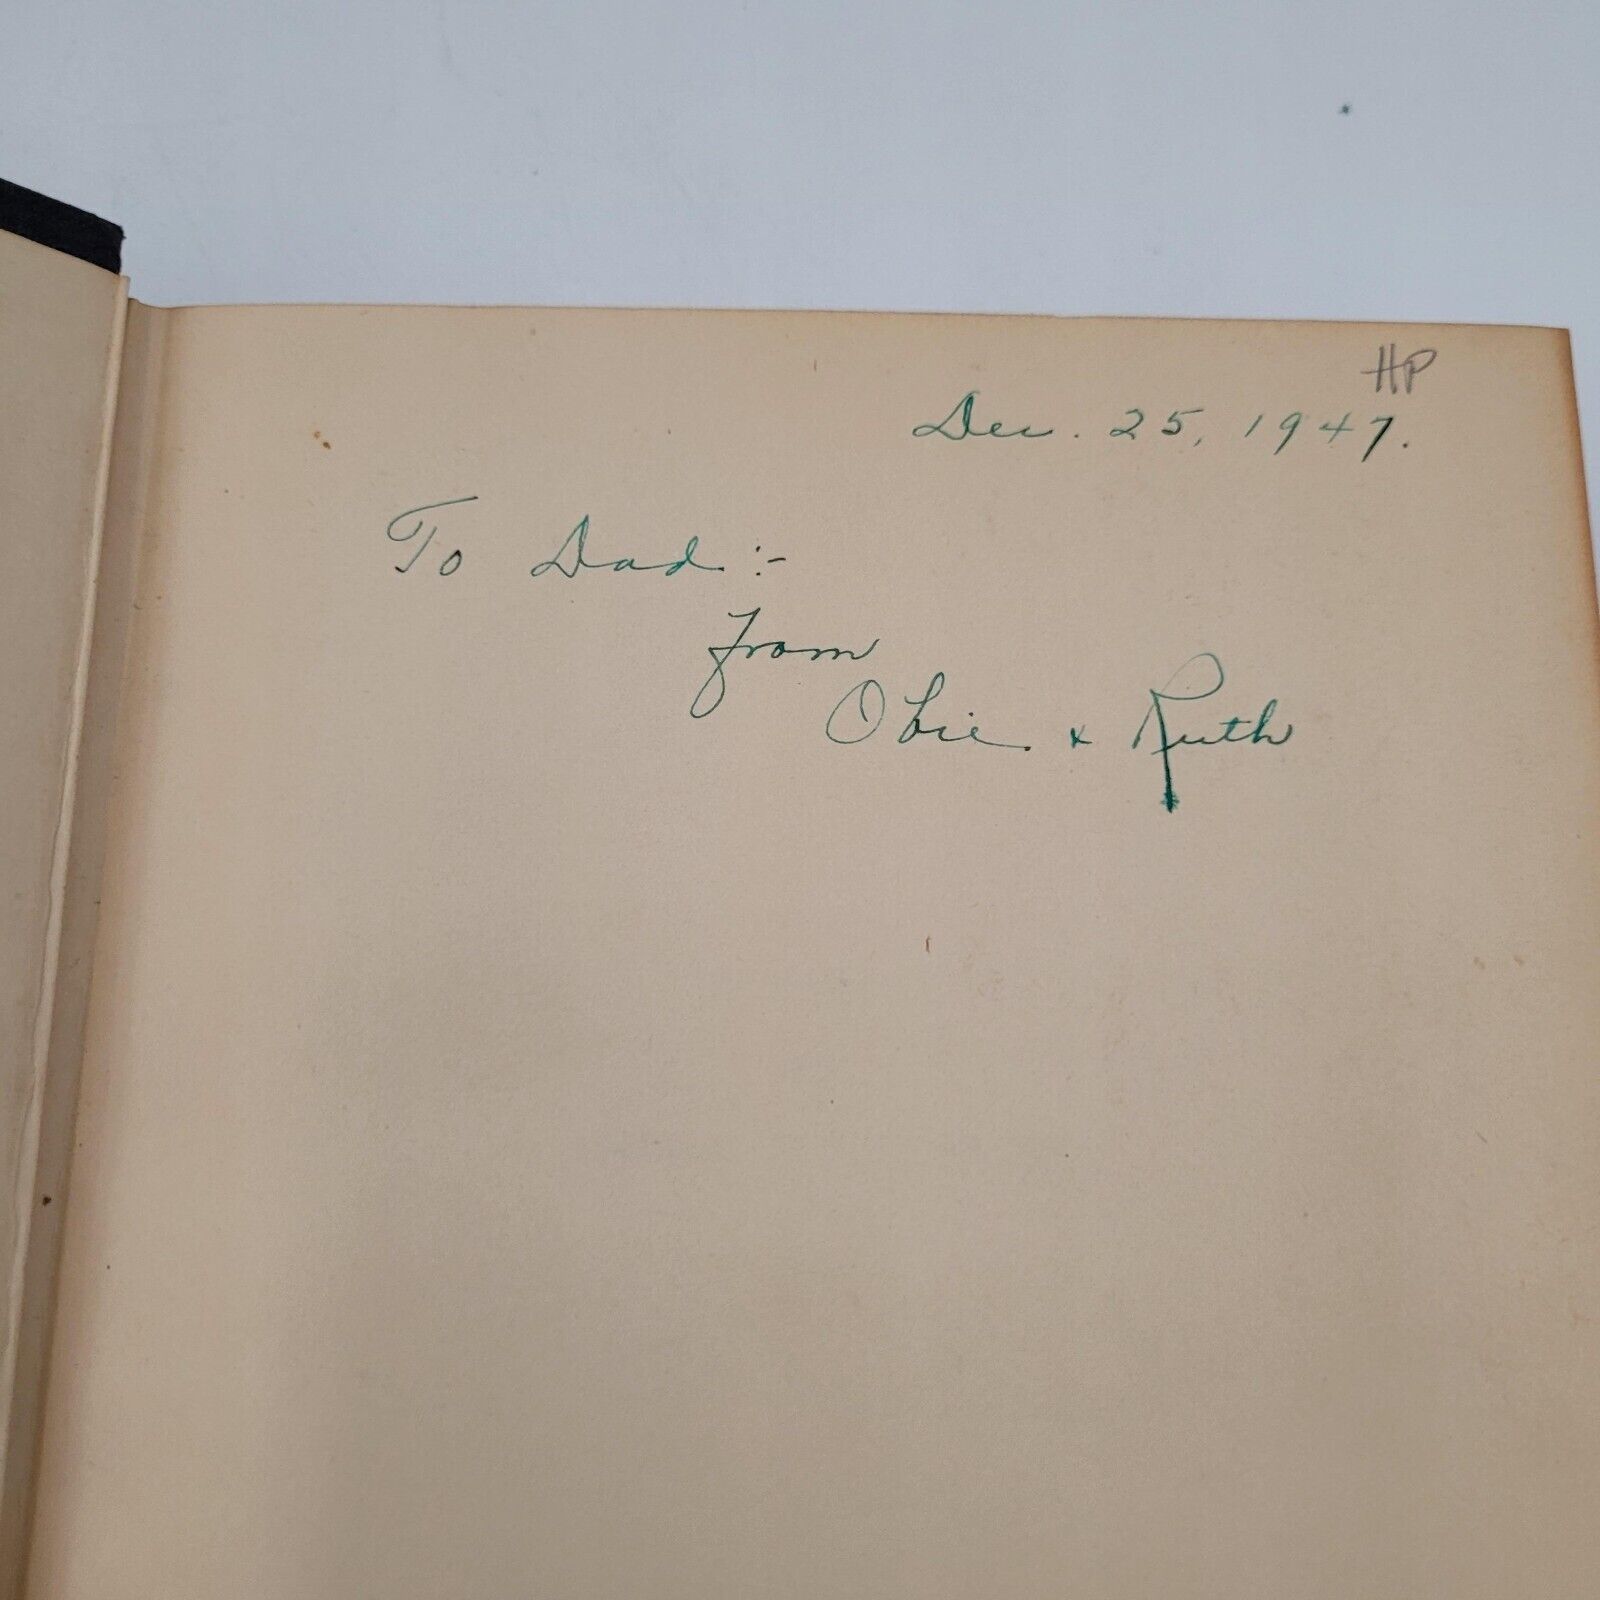 HP
Dec. 25, 1947.
To Dad :-
from
Obie & Ruth